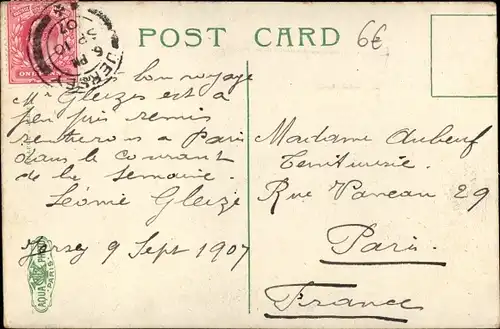 POST CARD
6€
JERSEY
6 PM
SP 10
07
ONE
bon voyage
Mr Gleize est à
peu près remis
rentrerons à Paris
dans le courant
de la semaine.
Léonie Gleize
Jersey 9 Sept 1907
Madame Aubeuf
Teinturerie.
Rue Vaneau 29
Paris.
France
AQUA PHOTO
PARIS